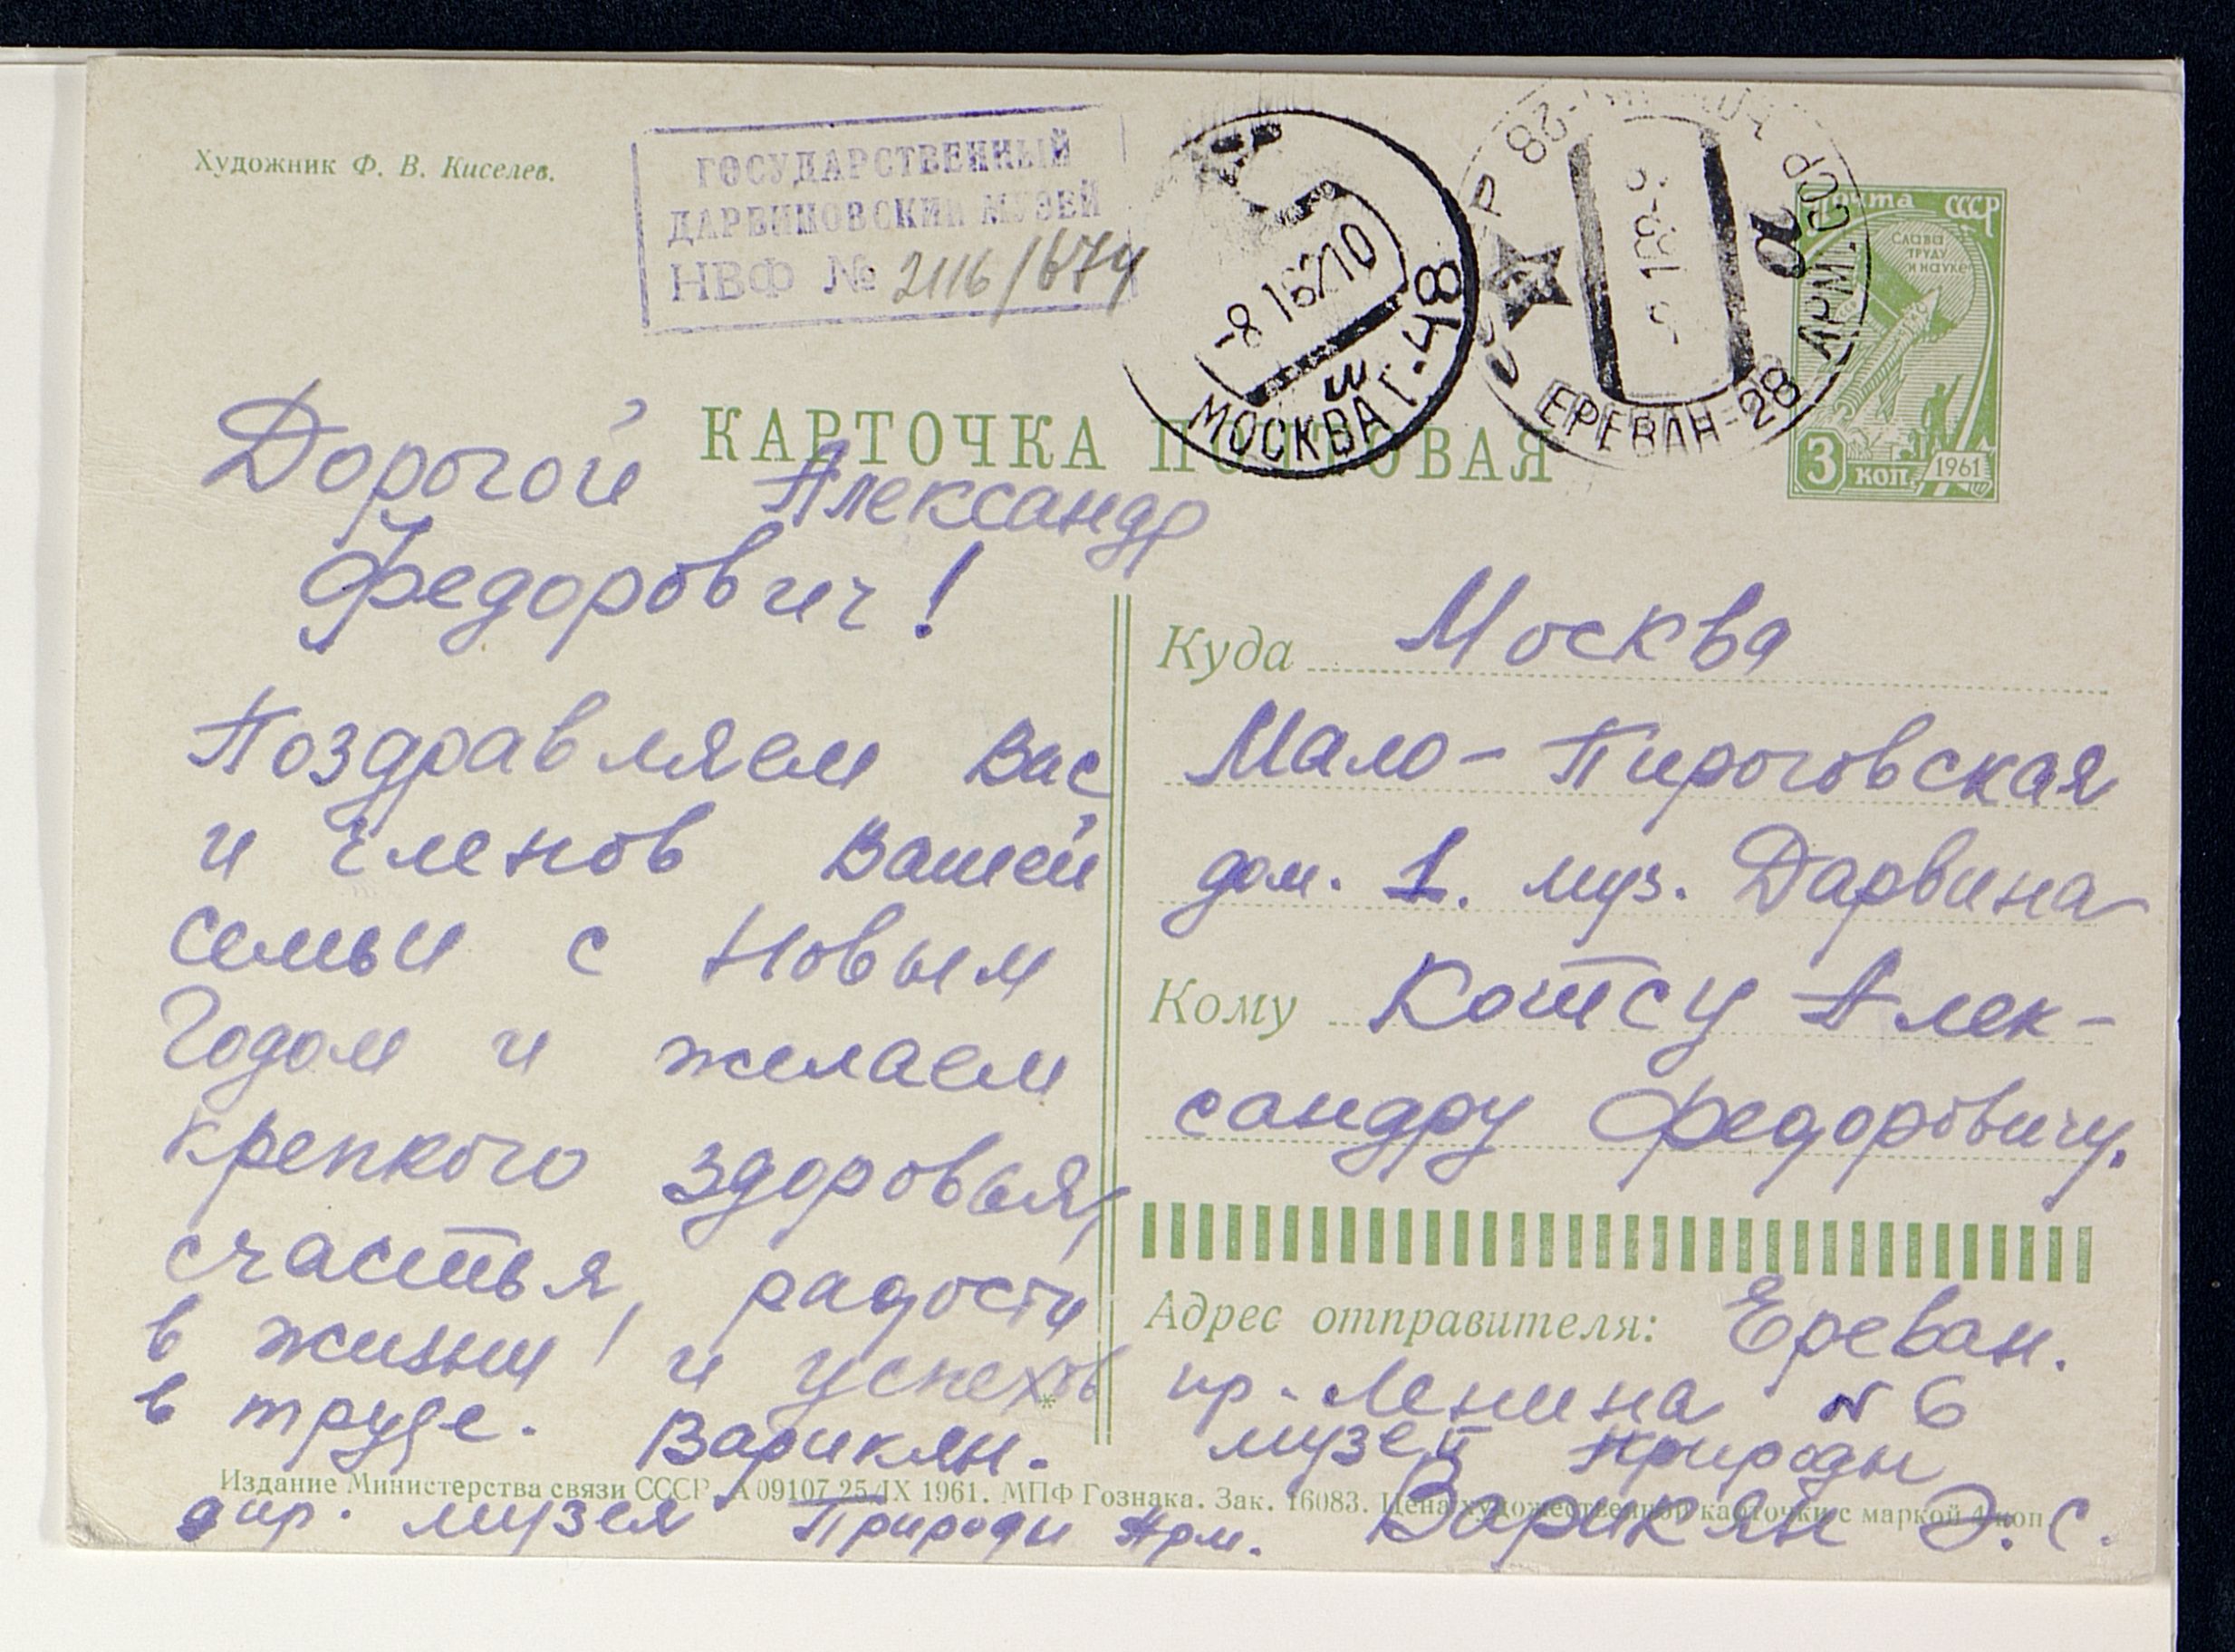 Художник Ф. В. Киселев.
ГОСУДАРСТВЕННЫЙ
ДАРВИНОВСКИЙ МУЗЕЙ
НВФ № 2116/674
-8 1 62 10
МОСКВА Г-48
ш
ЕРЕВАН-28 АРМ. ССР
а
почта СССР
СЛАВА
ТРУДУ
И НАУКЕ
3 коп. 1961
КАРТОЧКА ПОЧТОВАЯ
Дорогой Александр
Федорович!
Поздравляем Вас
и членов Вашей
семьи с Новым
Годом и желаем
крепкого здоровья,
счастья, радости
в жизни! и успехов
в труде. Варикян.
дир. музея Природы Арм.
Куда Москва
Мало-Пироговская
дом. 1. муз. Дарвина
Кому Котсу Алек-
сандру Федоровичу.
Адрес отправителя: Ереван.
пр. Ленина N 6
музей природы
Варикян Э. С.
Издание Министерства связи СССР. А 09107 25/IX 1961. МПФ Гознака. Зак. 16083. Цена художественной карточки с маркой 4 коп